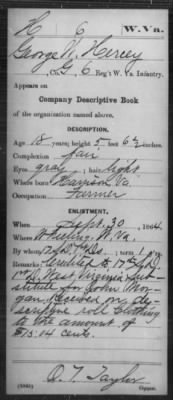 H 6 W. Va.
George W. Hersey
, Co. G, 6 Reg't W. Va. Infantry.
Appears on
Company Descriptive Book
of the organization named above.
DESCRIPTION.
Age 18 years; height 5 feet 6½ inches.
Complexion fair
Eyes gray ; hair light
Where born Harrison Va.
Occupation Farmer
ENLISTMENT.
When Sept. 30 , 1864.
Where Wheeling, W. Va.
By whom ; term 1 y'rs.
Remarks: Credited to 17th Sub.
1st D. West Virginia Sub-
stitute for John Mor-
gan. Received on de-
scriptive roll clothing
to the amount of
$ 13.04 cents.
O. T. Taylor
Copyist.